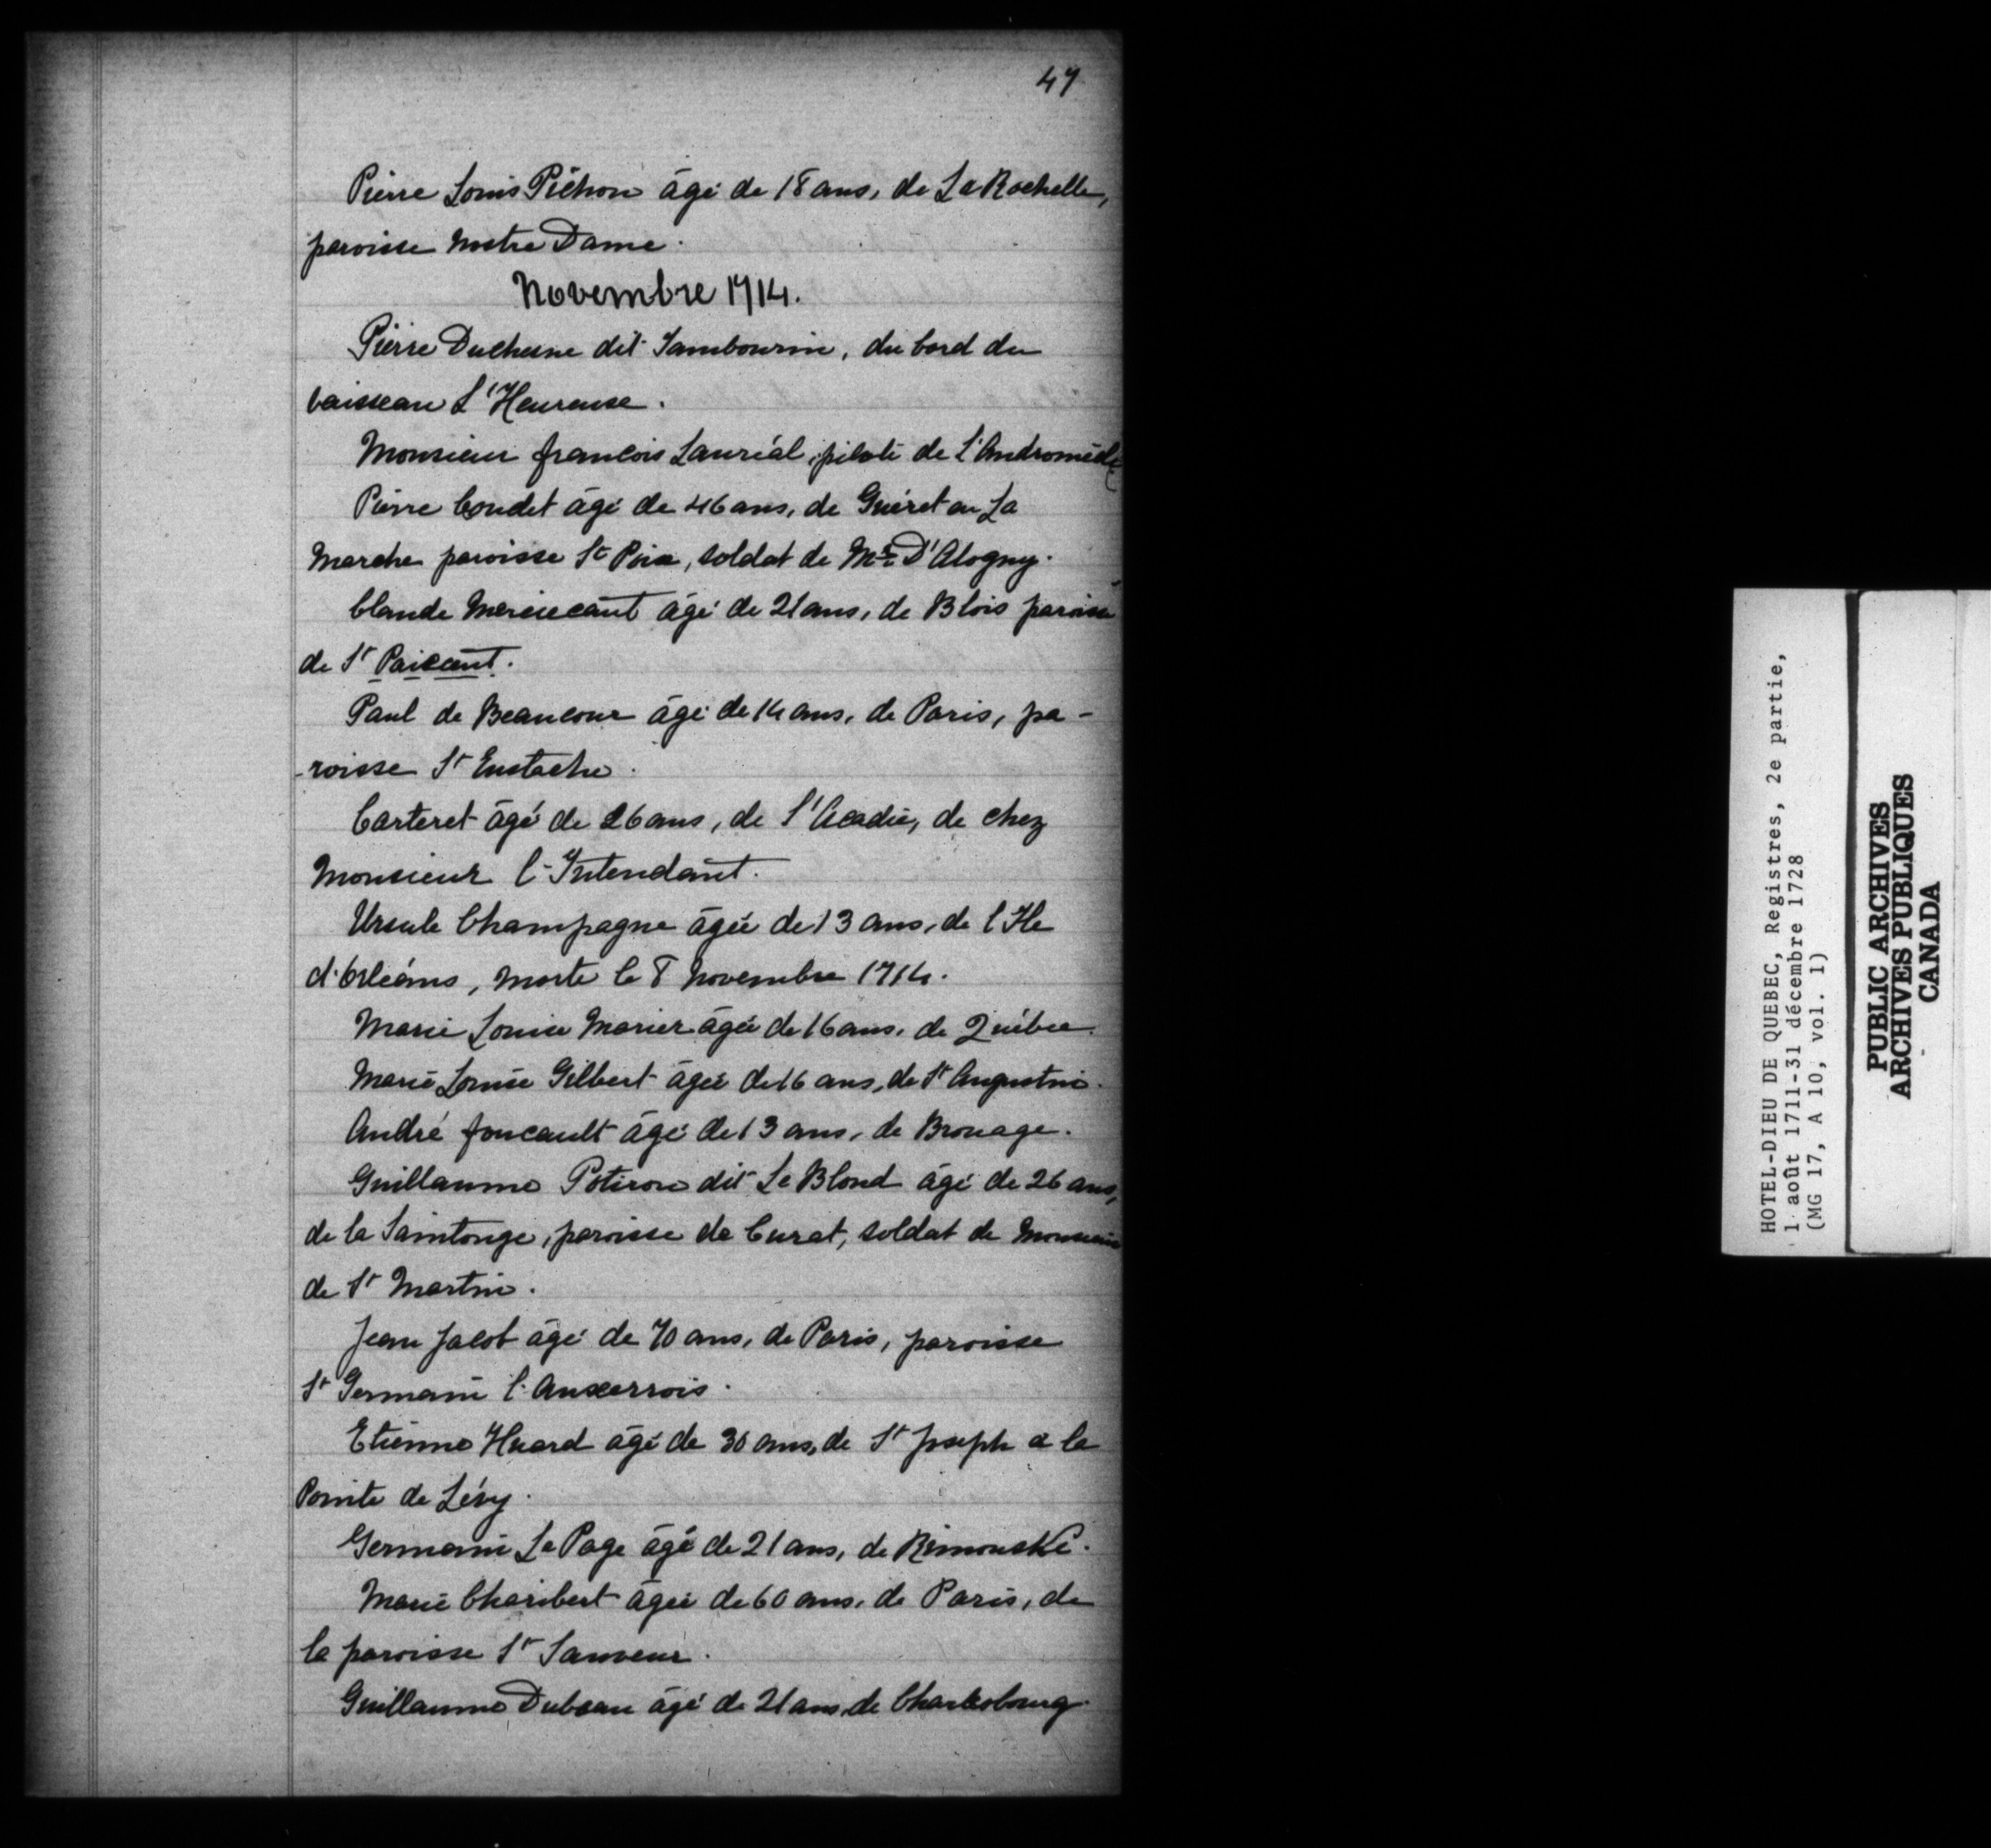 47
Pierre Louis Pichon âgé de 18 ans, de La Rochelle,
paroisse Nostre Dame.
Novembre 1714.
Pierre Duchesne dit Tambourin, du bord du
vaisseau L'Heureuse.
Monsieur francois Lauréal, pilote de L'Andromède
Pierre Coudet âgé de 46 ans, de Guéret en La
Marche paroisse St Poix, soldat de Mr D'Alogny.
Claude Mercucant âgé de 21 ans, de Blois paroisse
de St Paixant.
Paul de Beaucour âgé de 14 ans, de Paris, pa-
-roisse St Eustache.
Carteret âgé de 26 ans, de l'Acadie, de chez
Monsieur l'Intendant.
Ursule Champagne âgée de 13 ans, de l'Ile
d'Orléans, morte le 8 Novembre 1714.
Marie Louise Marier âgée de 16 ans, de Québec.
Marie Louise Gilbert âgée de 16 ans, de St Augustin.
André foucault âgé de 13 ans, de Brouage.
Guillaume Potiron dit Le Blond âgé de 26 ans,
de la Saintonge, paroisse de Curat, soldat de Monsieur
de St Martin.
Jean Jacob âgé de 70 ans, de Paris, paroisse
St Germain l'Auxerrois.
Etienne Huard âgé de 30 ans, de St Joseph à la
Pointe de Lévy.
Germain Le Page âgé de 21 ans, de Rimouski.
Marie Charibert âgée de 60 ans, de Paris, de
la paroisse St Sauveur.
Guillaume Dubeau âgé de 21 ans, de Charlesbourg.
HOTEL-DIEU DE QUEBEC, Registres, 2e partie,
1 août 1711-31 décembre 1728
(MG 17, A 10, vol. 1)
PUBLIC ARCHIVES
ARCHIVES PUBLIQUES
CANADA